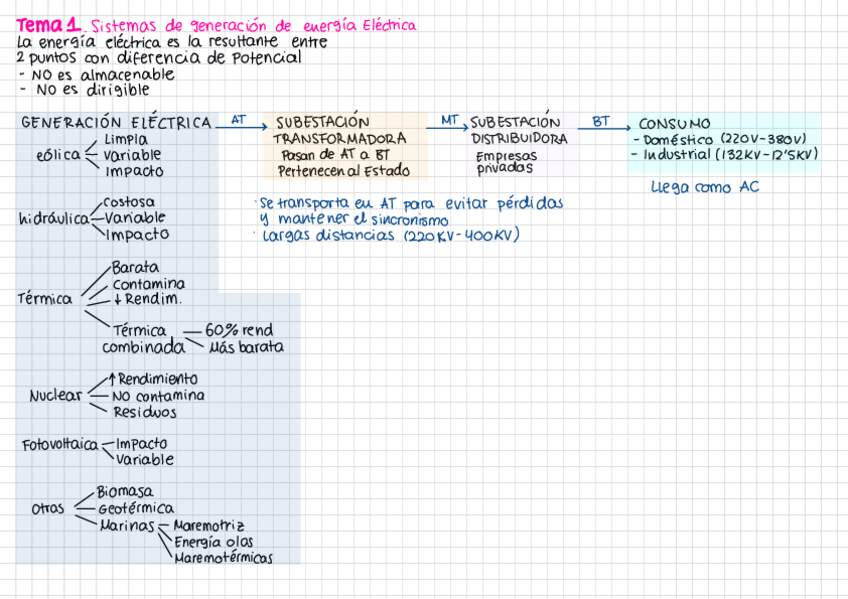 Tema 1. Sistemas de generación de energía Eléctrica
La energía eléctrica es la resultante entre
2 puntos con diferencia de Potencial
- NO es almacenable
- NO es dirigible
GENERACIÓN ELÉCTRICA
AT
SUBESTACIÓN
TRANSFORMADORA
Pasan de AT a BT
Pertenecen al Estado
MT
SUBESTACIÓN
DISTRIBUIDORA
Empresas
privadas
BT
CONSUMO
- Doméstico (220V-380V)
- Industrial (132KV-12'5KV)
Llega como AC
· Se transporta en AT para evitar pérdidas
y mantener el sincronismo
· Largas distancias (220KV-400KV)
eólica
Limpia
Variable
Impacto
hidráulica
Costosa
Variable
Impacto
Térmica
Barata
Contamina
↓ Rendim.
Térmica
combinada
60% rend
Más barata
Nuclear
↑ Rendimiento
NO contamina
Residuos
Fotovoltaica
Impacto
Variable
Otros
Biomasa
Geotérmica
Marinas
Maremotriz
Energía olas
Maremotérmicas